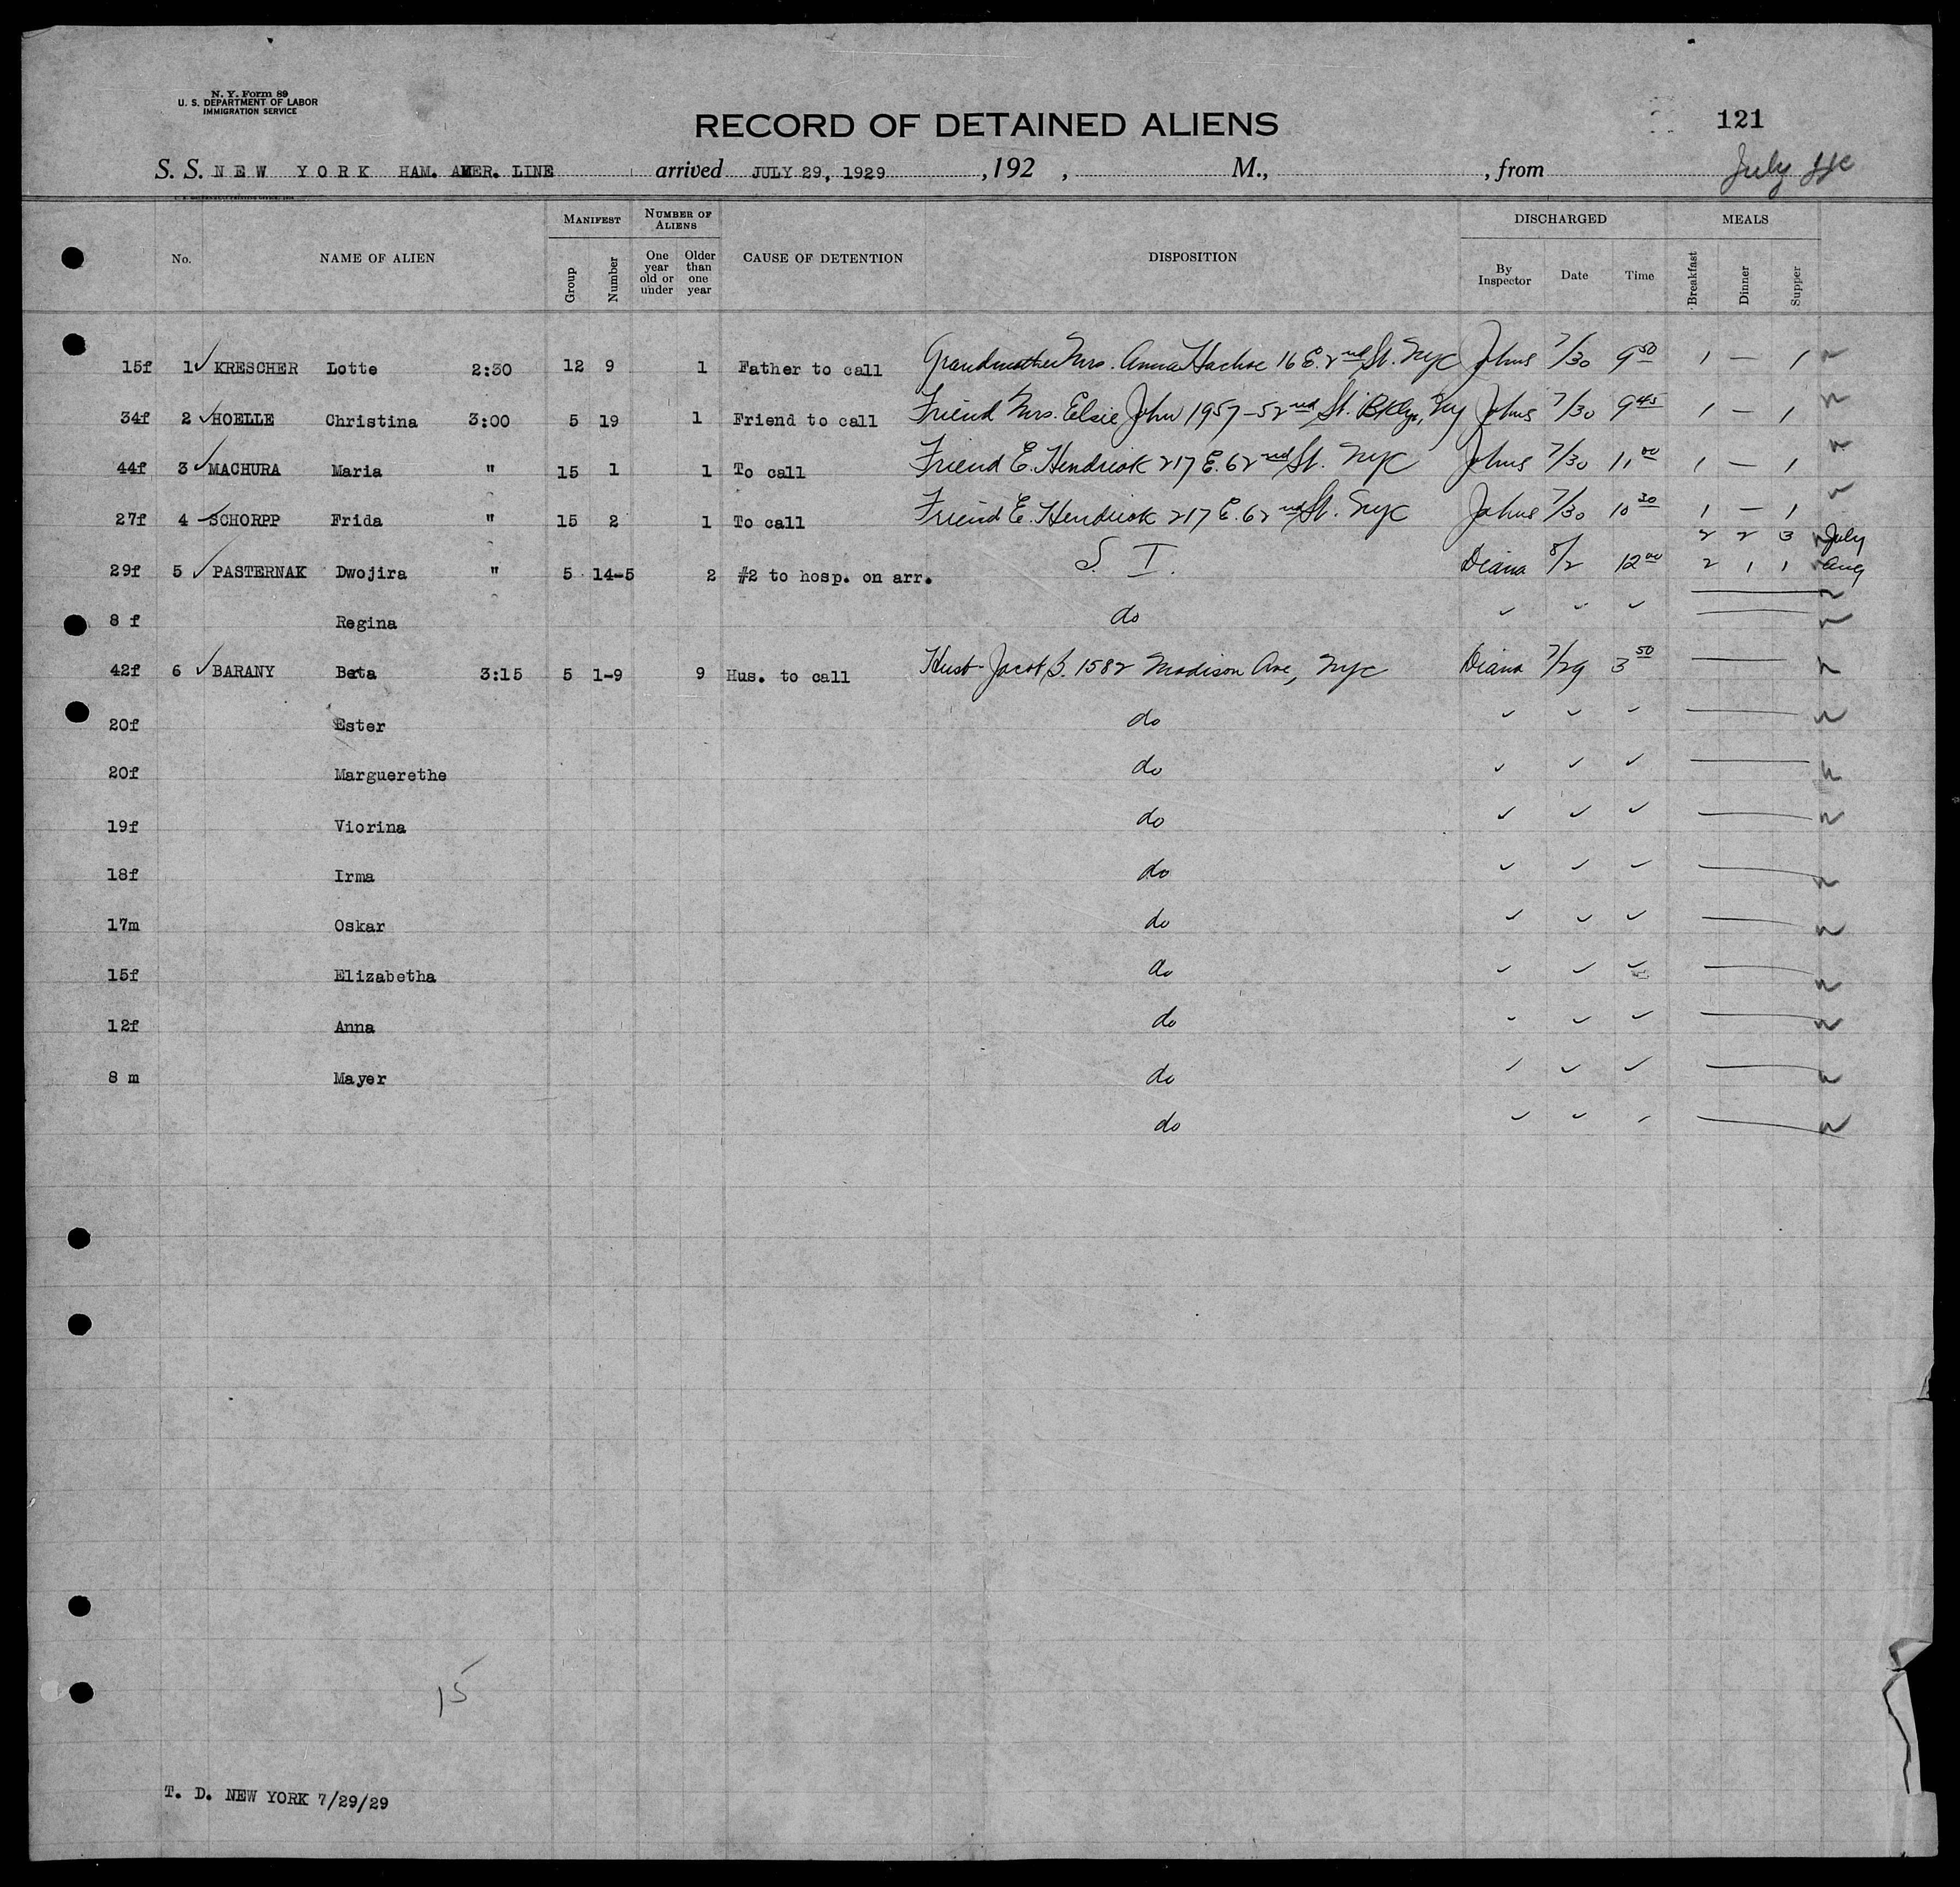 N. Y. Form 89
U. S. DEPARTMENT OF LABOR
IMMIGRATION SERVICE
RECORD OF DETAINED ALIENS
121
S. S. NEW YORK HAM. AMER. LINE arrived JULY 29, 1929 , 192 , M., , from July
No. NAME OF ALIEN MANIFEST Group Number NUMBER OF ALIENS One year old or under Older than one year CAUSE OF DETENTION DISPOSITION DISCHARGED By Inspector Date Time MEALS Breakfast Dinner Supper
15f 1 ✓ KRESCHER Lotte 2:30 12 9 1 Father to call Grandmother Mrs. Anna 16 E. 2nd St. NYC Johns 7/30 9 50 1 — 1
34f 2 ✓ HOELLE Christina 3:00 5 19 1 Friend to call Friend Mrs. Elsie John 1957-52nd St. Bklyn, Ny Johns 7/30 9 45 1 — 1
44f 3 ✓ MACHURA Maria " 15 1 1 To call Friend E. Hendriok 217 E. 62nd St. NYC Johns 7/30 11 00 1 — 1
27f 4 ✓ SCHORPP Frida " 15 2 1 To call Friend E. Hendriok 217 E. 62nd St. NYC Johns 7/30 10 30 1 — 1
2 2 3 July
29f 5 ✓ PASTERNAK Dwojira " 5 14-5 2 #2 to hosp. on arr. S. I. Diana 8/2 12 00 2 1 1 Aug
8 f Regina do ✓ ✓ ✓
42f 6 ✓ BARANY Beta 3:15 5 1-9 9 Hus. to call Husb Jacob B. 1582 Madison Ave, NYC Diana 7/29 3 50
20f Ester do ✓ ✓ ✓
20f Marguerethe do ✓ ✓ ✓
19f Viorina do ✓ ✓ ✓
18f Irma do ✓ ✓ ✓
17m Oskar do ✓ ✓ ✓
15f Elizabetha do ✓ ✓ ✓
12f Anna do ✓ ✓ ✓
8 m Mayer do ✓ ✓ ✓
do ✓ ✓ ✓
15
T. D. NEW YORK 7/29/29